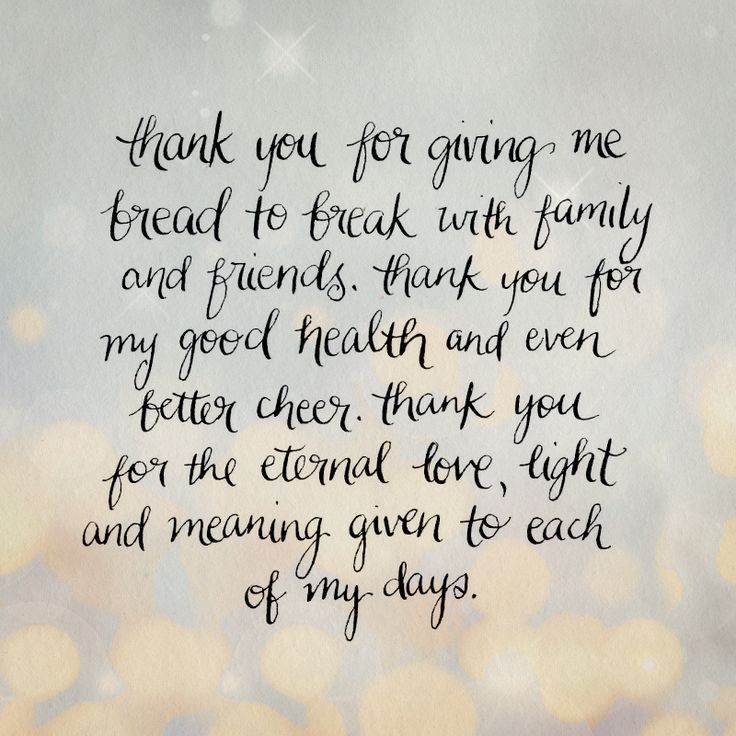 thank you for giving me
bread to break with family
and friends. thank you for
my good health and even
better cheer. thank you
for the eternal love, light
and meaning given to each
of my days.